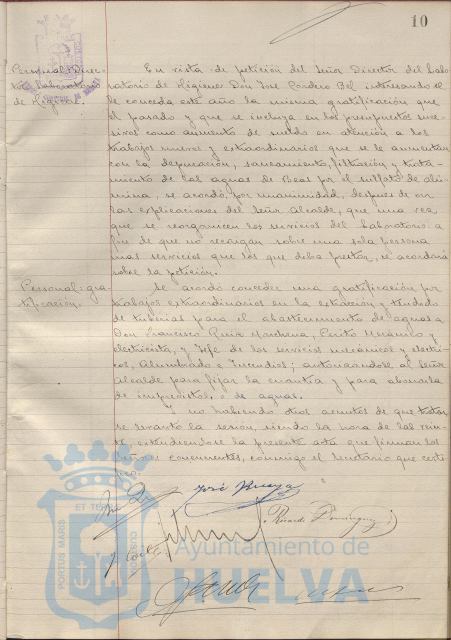 10
Personal: Direc-
tor Laboratorio
de Higiene.
En vista de petición del Señor Director del Labo-
ratorio de Higiene Don José Cordero Bel interesando se
le conceda este año la misma gratificación que
el pasado y que se incluya en los presupuestos
como aumento de sueldo en atención a los
trabajos nuevos y extraordinarios que se le aumentan
con la depuración, saneamiento, filtración y trata-
miento de las aguas de Beas por el sulfato de alú-
mina, se acordó, por unanimidad, después de oir
las explicaciones del Señor Alcalde, que una vez
que se reorganicen los servicios del Laboratorio a
fin de que no recaigan sobre una sola persona
mas servicios que los que deba prestar, se acordará
sobre la petición.
Personal: gra-
tificación.
Se acordó conceder una gratificación por
trabajos extraordinarios en la extracción y tendido
de tuberias para el abastecimiento de aguas a
Don Francisco Ruiz Marchena, Perito Mecánico y
electricista, y Jefe de los servicios mecánicos y electri-
cos, Alumbrado e Incendios; autorizandose al Señor
Alcalde para fijar la cuantia y para abonarla
de imprevistos, o de aguas.
Y no habiendo otros asuntos de que tratar
se levantó la sesión, siendo la hora de las vein-
te, extendiendose la presente acta que firman los
Señores concurrentes, conmigo el Secretario que certi-
fico.
José
Ricardo Dominguez
PORTUS MARIS
ET TERRE
CUSTODIO
Ayuntamiento de
HUELVA